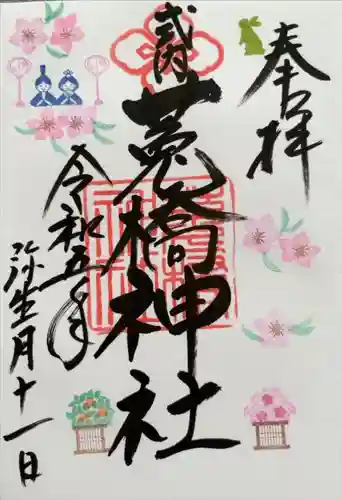 奉拝
式内
莵橋神社
令和五年
弥生月十一日